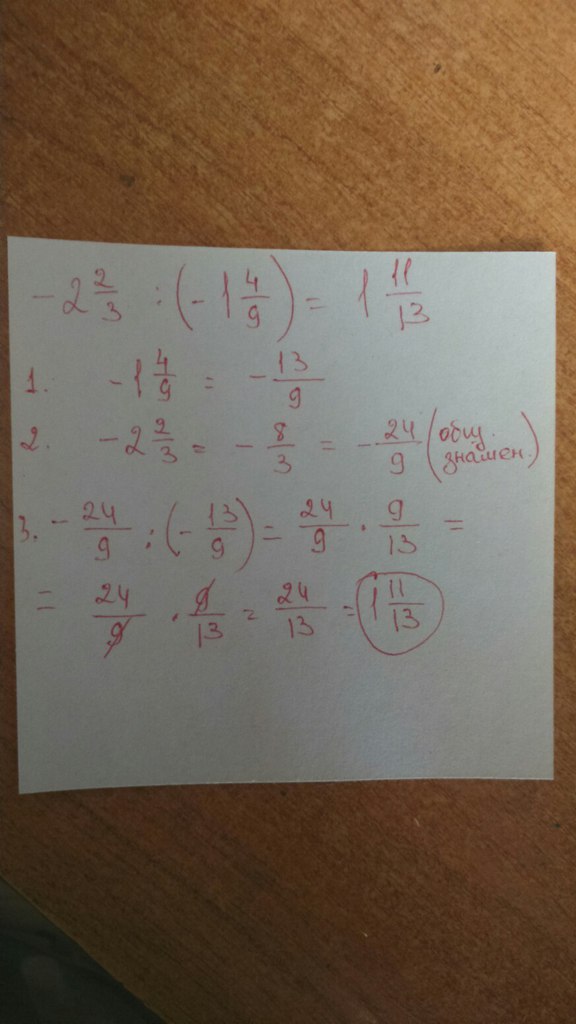 -2 2/3 : (-1 4/9) = 1 11/13
1. -1 4/9 = -13/9
2. -2 2/3 = -8/3 = -24/9 (общ. знамен.)
3. -24/9 : (-13/9) = 24/9 · 9/13 =
= 24/9 · 9/13 = 24/13 = 1 11/13